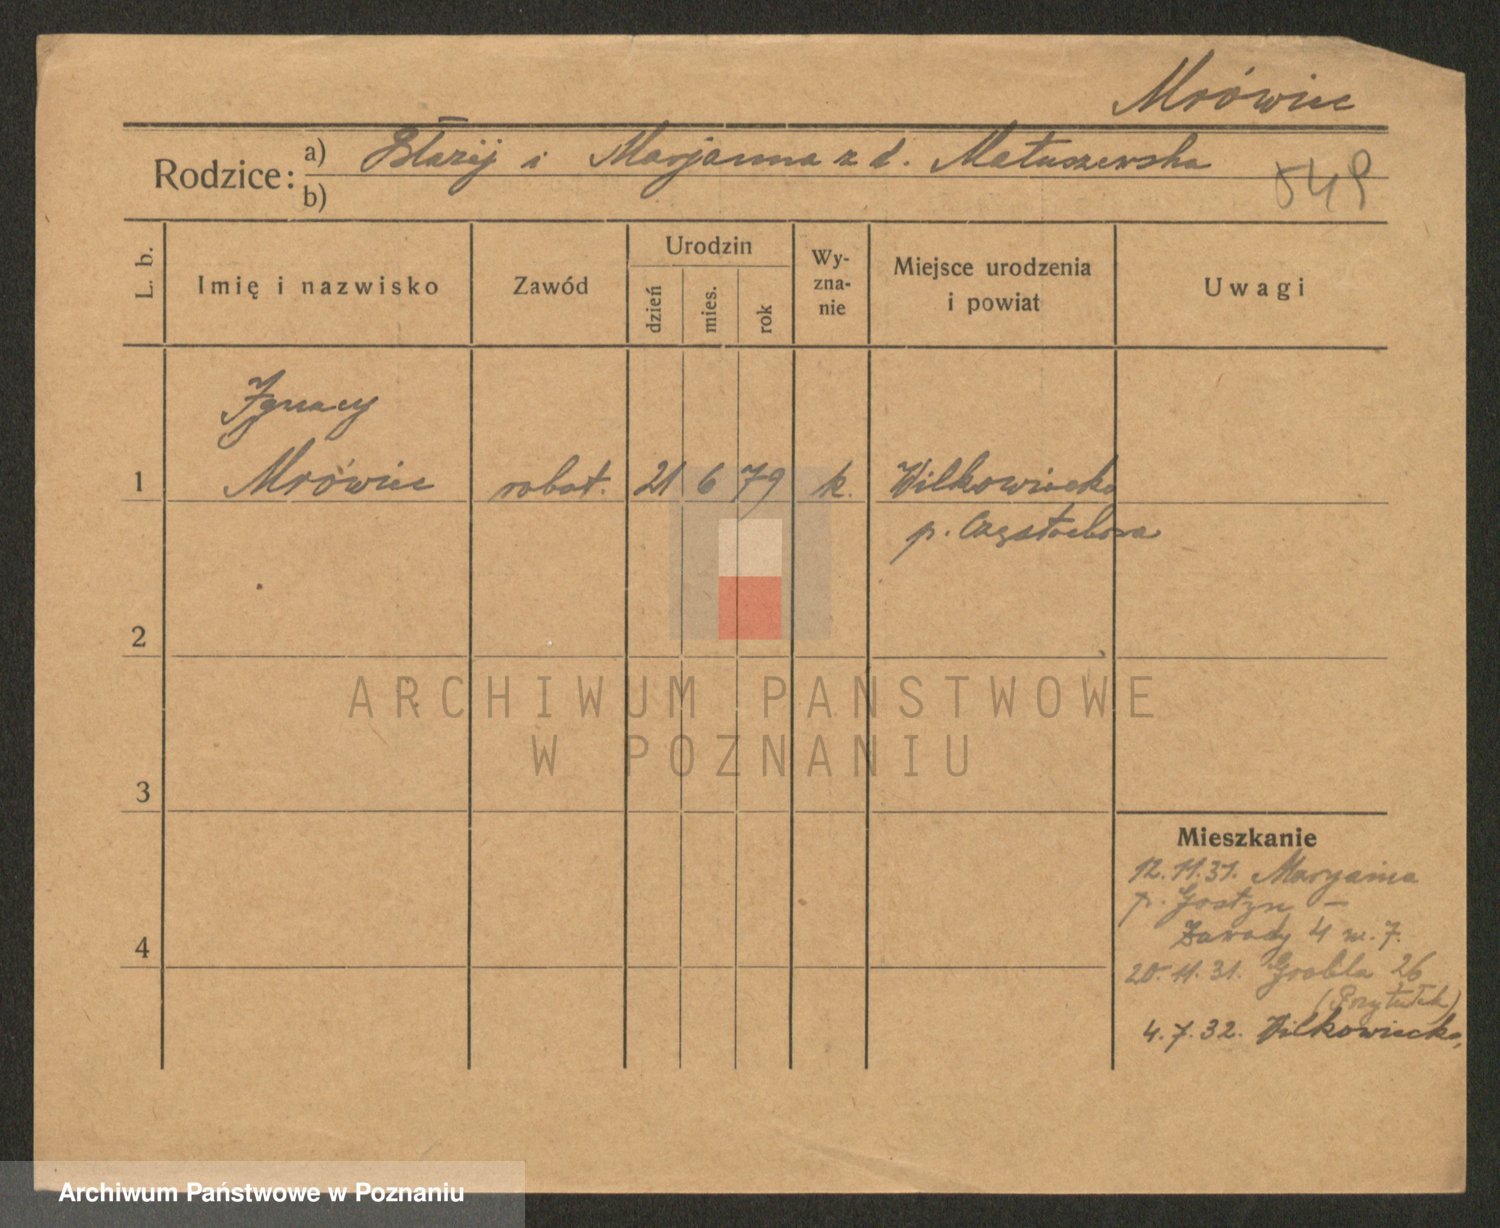 Mrówiec
Rodzice:
a) Błażij i Marjanna z d. Matuszewska
b)
L. b.
Imię i nazwisko
Zawód
Urodzin
dzień
mies.
rok
Wy-
zna-
nie
Miejsce urodzenia
i powiat
Uwagi
Ignacy
1 Mrówiec robot. 21 6 79 k. Wilkowiecko
p. Częstochowa
2
3
4
ARCHIWUM PAŃSTWOWE
W POZNANIU
Mieszkanie
12.11.31. Maryania
p. Gostyn –
Zawady 4 m. 7.
20.11.31. Grobla 26
(Przytułek)
4.7.32. Wilkowiecko,
Archiwum Państwowe w Poznaniu